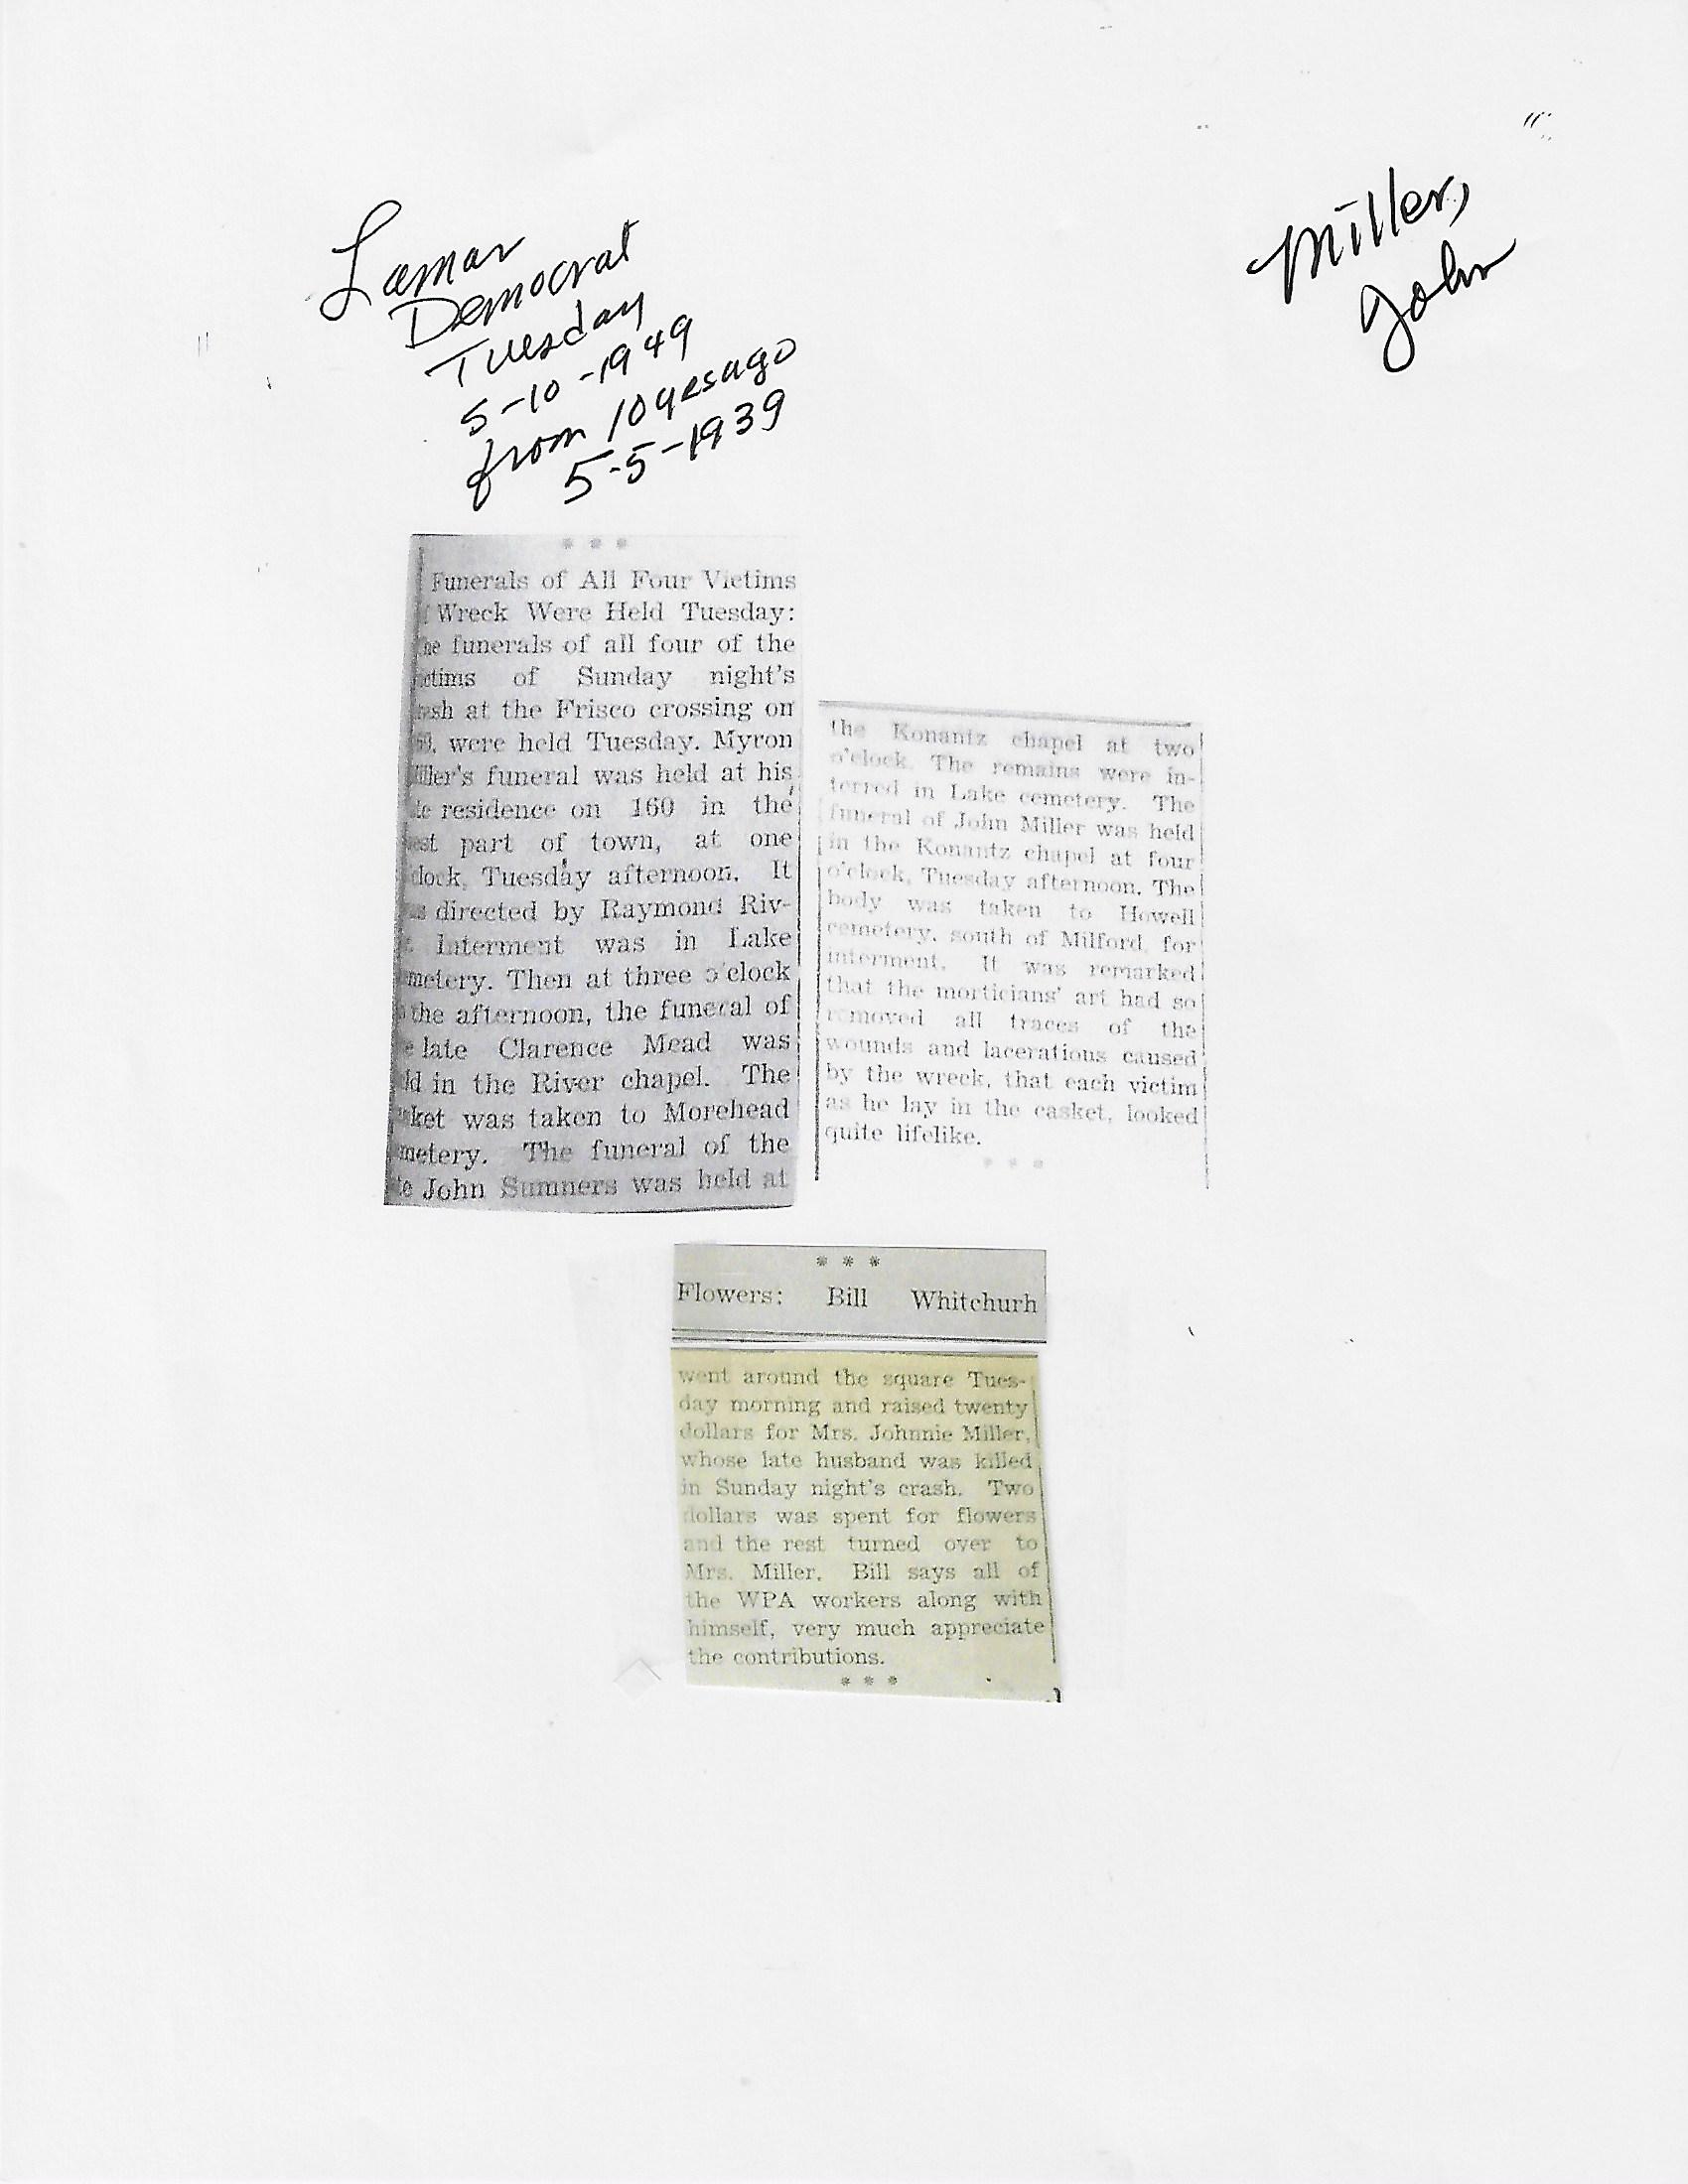 Lamar
Democrat
Tuesday
5-10-1949
from 10 yrs ago
5-5-1939
Miller,
John
* * *
Funerals of All Four Victims
Wreck Were Held Tuesday:
funerals of all four of the
of Sunday night's
at the Frisco crossing on
were held Tuesday. Myron
funeral was held at his
residence on 160 in the
part of town, at one
Tuesday afternoon. It
directed by Raymond Riv-
Interment was in Lake
Then at three o'clock
the afternoon, the funeral of
late Clarence Mead was
in the River chapel. The
was taken to Morehead
The funeral of the
John Sumners was held at
the Konantz chapel at two
o'clock. The remains were in-
terred in Lake cemetery. The
funeral of John Miller was held
in the Konantz chapel at four
o'clock, Tuesday afternoon. The
body was taken to Howell
cemetery, south of Milford, for
interment. It was remarked
that the morticians' art had so
removed all traces of the
wounds and lacerations caused
by the wreck, that each victim
as he lay in the casket, looked
quite lifelike.
* * *
* * *
Flowers: Bill Whitchurh
went around the square Tues-
day morning and raised twenty
dollars for Mrs. Johnnie Miller,
whose late husband was killed
in Sunday night's crash. Two
dollars was spent for flowers
and the rest turned over to
Mrs. Miller. Bill says all of
the WPA workers along with
himself, very much appreciate
the contributions.
* * *